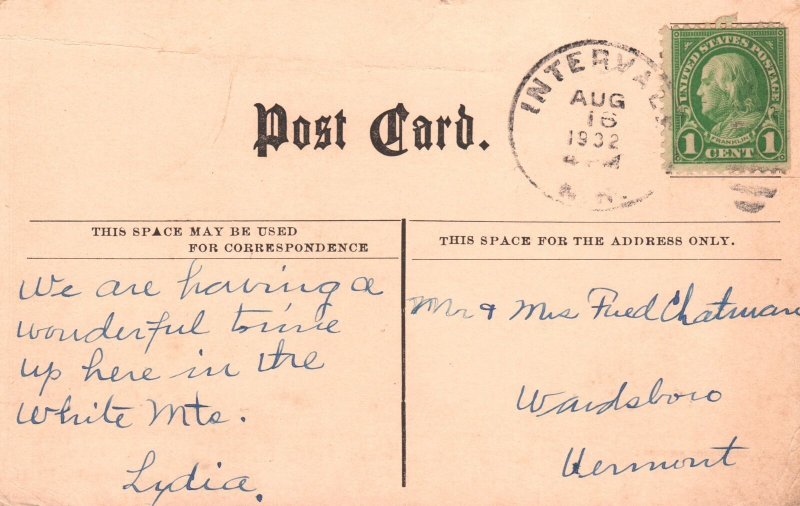 Post Card.
INTERVALE
AUG
16
1932
UNITED STATES POSTAGE
FRANKLIN
1 CENT 1
THIS SPACE MAY BE USED
FOR CORRESPONDENCE
We are having a
wonderful time
up here in the
White Mts.
Lydia.
THIS SPACE FOR THE ADDRESS ONLY.
Mr & Mrs Fred Chatman
Wardsboro
Vermont